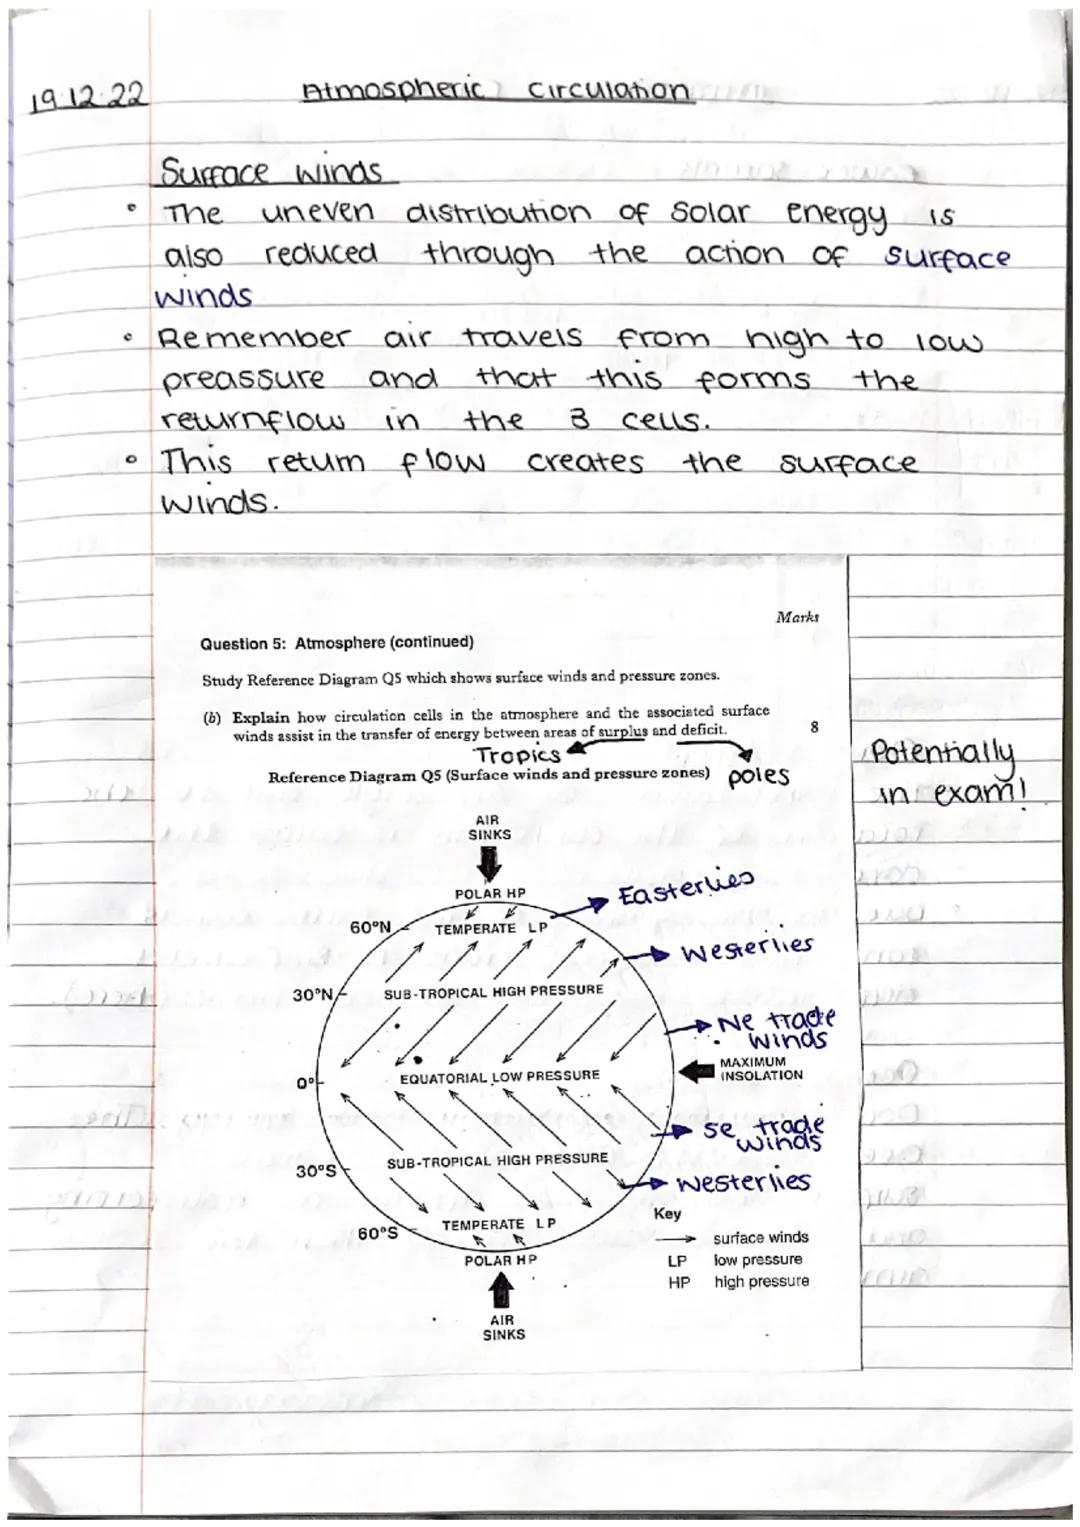 19.12.22
Atmospheric Circulation
Surface winds
• The uneven distribution of solar energy is
also reduced through the action of surface
winds
• Remember air travels from high to low
preassure and that this forms the
returnflow in the 3 cells.
• This return flow creates the surface
winds.
Marks
Question 5: Atmosphere (continued)
Study Reference Diagram Q5 which shows surface winds and pressure zones.
(b) Explain how circulation cells in the atmosphere and the associated surface
winds assist in the transfer of energy between areas of surplus and deficit. 8
Tropics
Reference Diagram Q5 (Surface winds and pressure zones) poles
Potentially
in exam!
AIR
SINKS
POLAR HP
Easterlies
60°N TEMPERATE LP
Westerlies
30°N SUB-TROPICAL HIGH PRESSURE
Ne trade
winds
MAXIMUM
INSOLATION
0° EQUATORIAL LOW PRESSURE
se trade
winds
30°S SUB-TROPICAL HIGH PRESSURE
Westerlies
60°S TEMPERATE LP
POLAR HP
AIR
SINKS
Key
surface winds
LP low pressure
HP high pressure